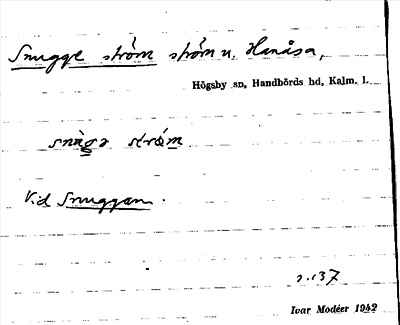 Snugge ström ström n. Hanåsa,
Högsby sn, Handbörds hd, Kalm. l.
Vid Snuggan.
s. 137
Ivar Modéer 1942